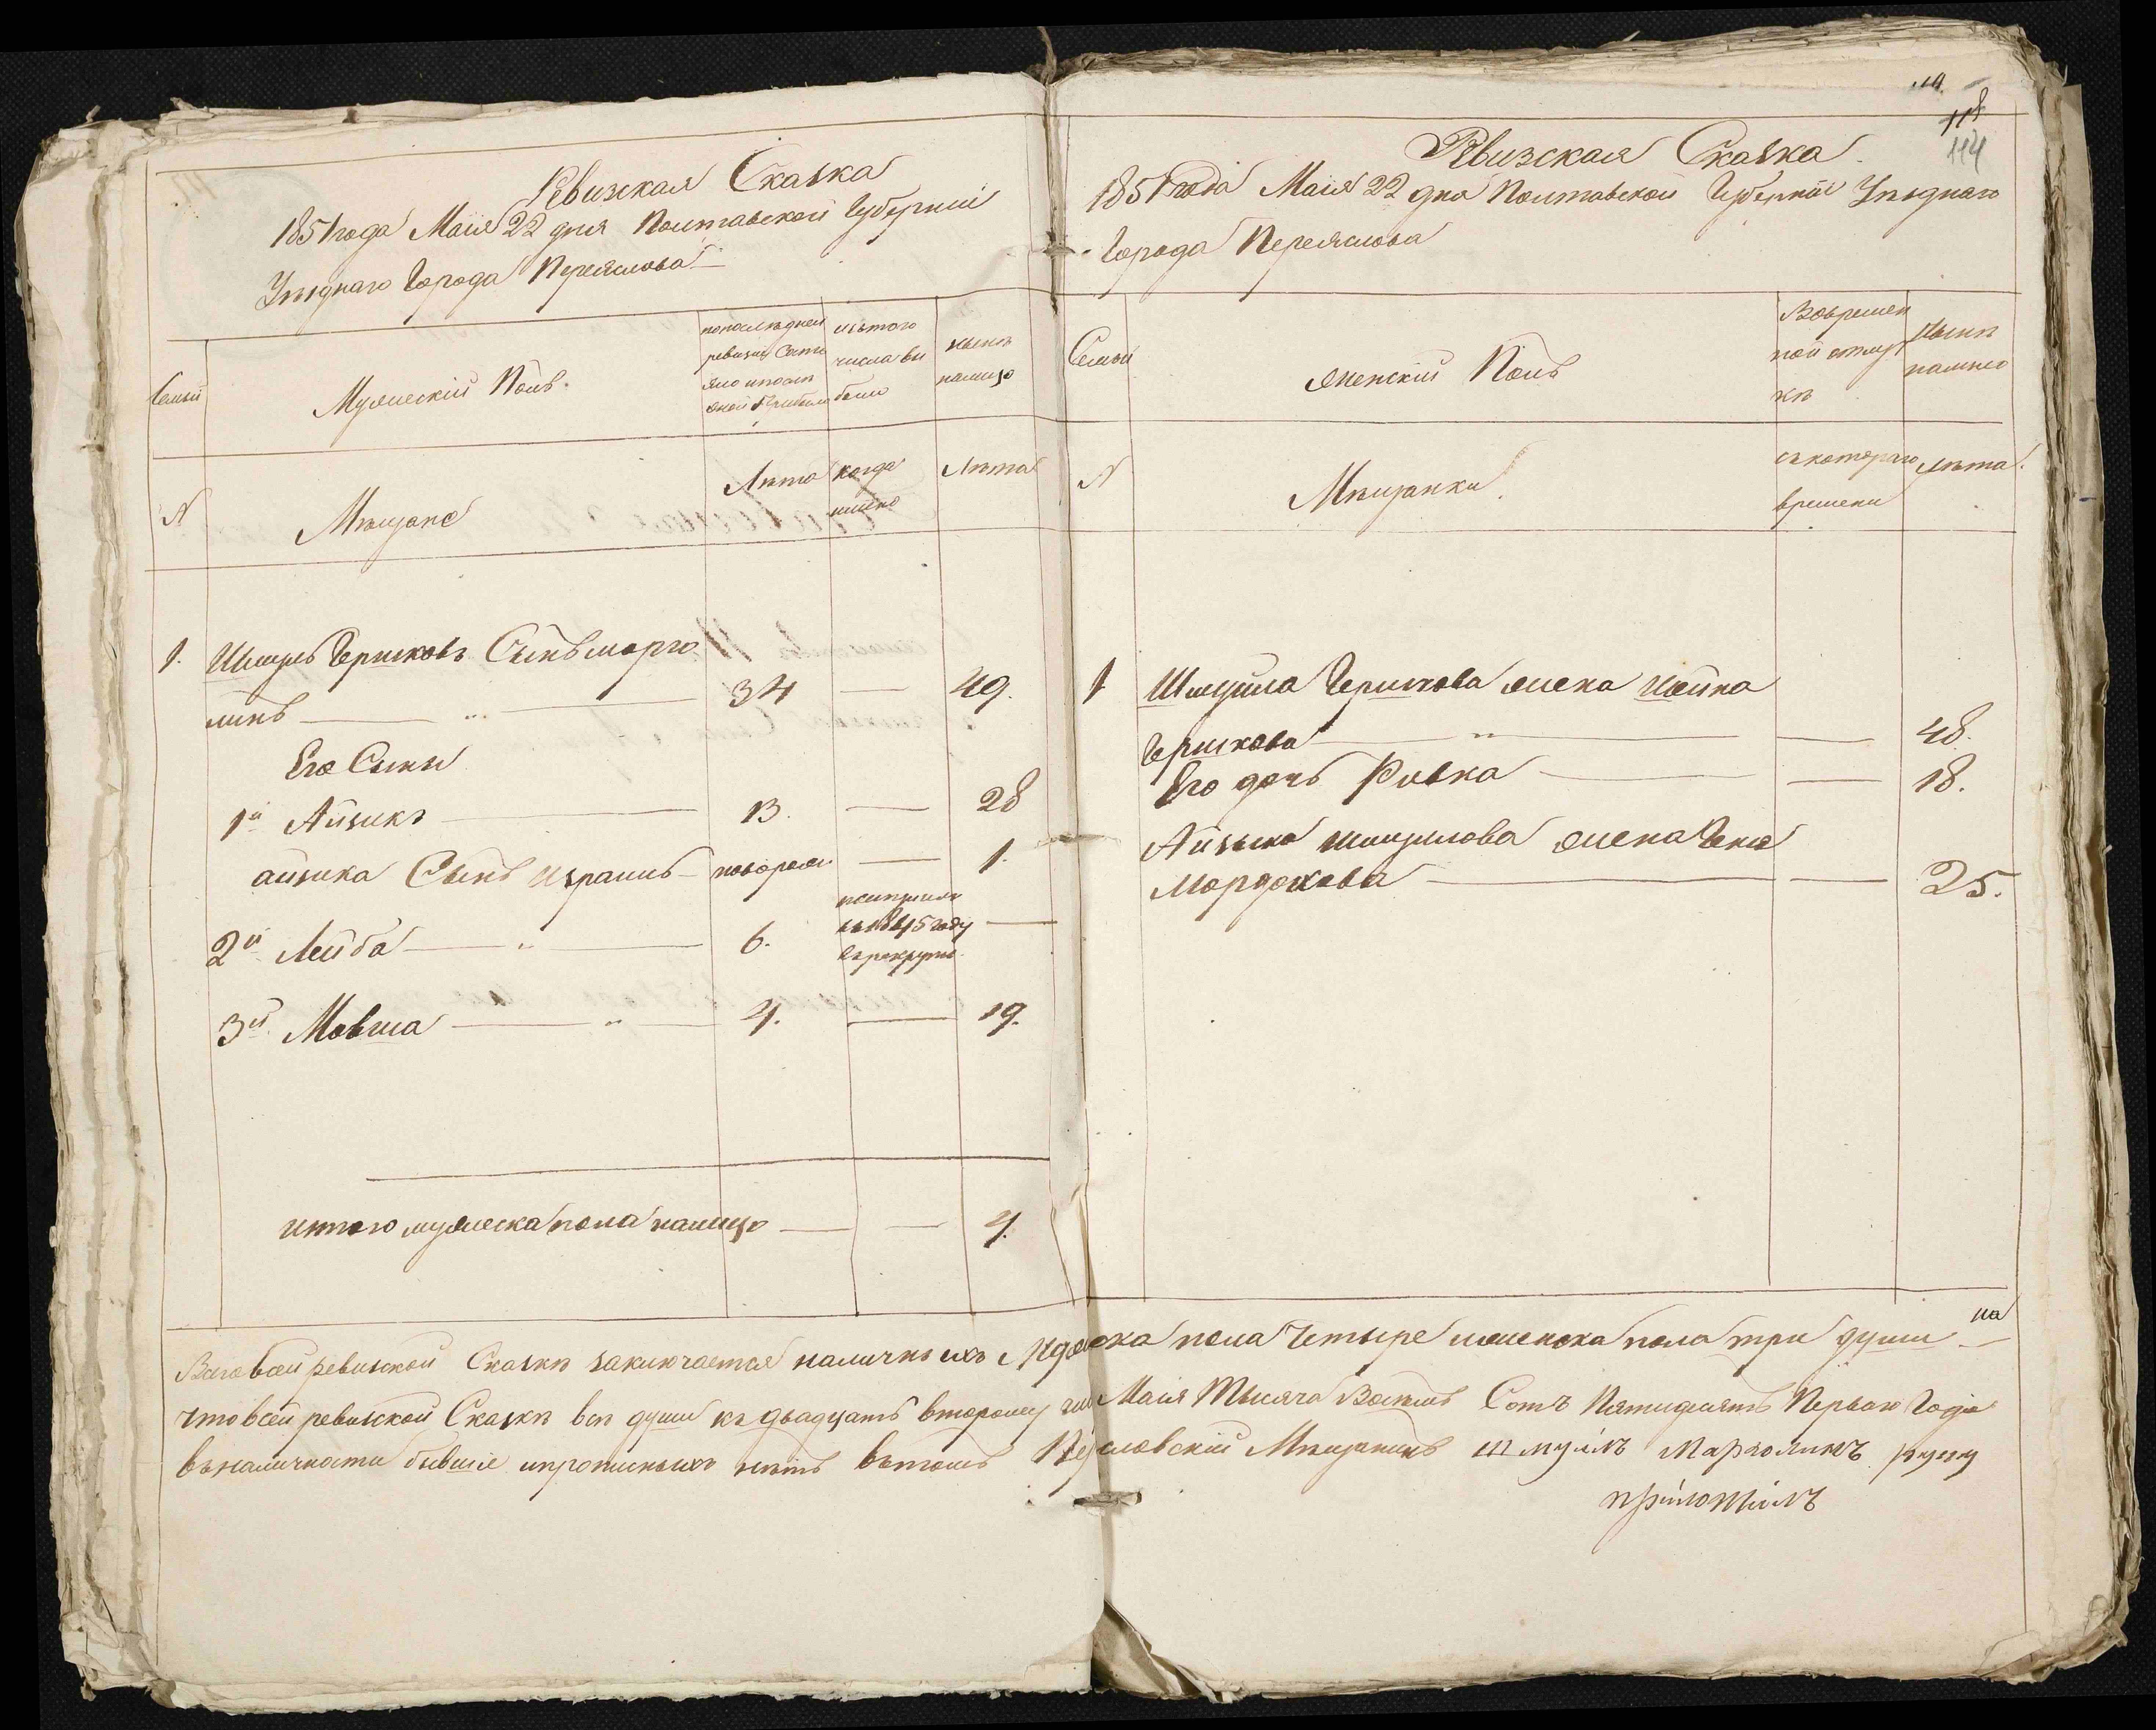 Ревизская Сказка
1851 года Маія 22 дня Полтавской Губерніи
Уѣзднаго Города Переяслова
Семьи
Мужескій Полъ.
по последней ревизіи Состояло и после оной прибыло
изъ того числа выбыло
нынѣ налицо
N
Мѣщане
Лѣта
когда именно
Лѣта
1. Шмуль Гершковъ Сынъ марго
линъ 34 — 49.
Его Сыны
1й Айзикъ 13. — 28
айзика Сынъ Израиль новорожд — 1.
2й Лейба 6. въ 1845 году въ рекруты —
3й Мовша 4. — 19.
итого мужеска пола налицо — — 4.
114
118
114
Ревизская Сказка.
1851 года Маія 22 дня Полтавской Губерніи Уѣзднаго
Города Переяслова
Семьи
Женскій Полъ
Вовремен
ной отлуч
кѣ
Нынѣ
налицо
N
Мѣщанки
съ котораго
времени
Лѣта.
1 Шмуйла Гершкова жена
Гершкова — 48.
Его дочь Ривка — 18.
Айзыка шмуйлова жена
Мордохова — 25.
Въ сей ревизской Сказкѣ заключается наличныхъ Мужеска пола Четыре женска пола три души на
что всей ревизской Сказкѣ всѣ души къ двадцать второму чис Маія Тысяча Восемь Сотъ Пятидесятъ Перваго Года
въ наличности бывшіе и прописныхъ нѣтъ въ томъ Переясловскій Мѣщанинъ шмуйлъ марголинъ руку
приложилъ